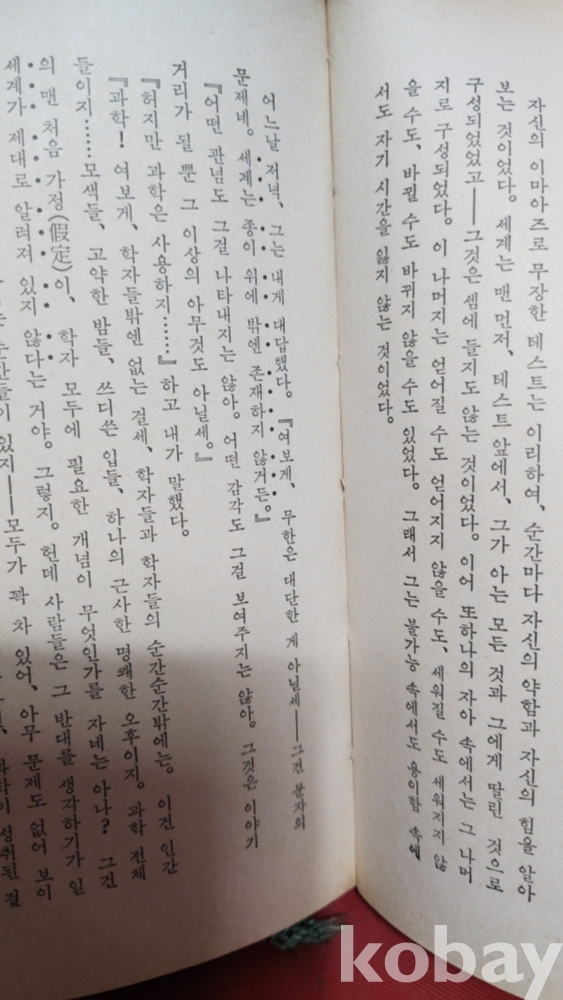 자신의 이마아즈로 무장한 테스트는 이리하여, 순간마다 자신의 약함과 자신의 힘을 알아
보는 것이었다. 세계는 맨 먼저, 테스트 앞에서, 그가 아는 모든 것과 그에게 딸린 것으로
구성되었었고――그것은 셈에 들지도 않는 것이었다. 이어 또하나의 자아 속에서는 그 나머
지로 구성되었다. 이 나머지는 얻어질 수도 얻어지지 않을 수도, 세워질 수도 세워지지 않
을 수도, 바뀔 수도 바뀌지 않을 수도 있었다. 그래서 그는 불가능 속에서도 용이함 속에
서도 자기 시간을 잃지 않는 것이었다.
어느날 저녁, 그는 내게 대답했다. 『여보게, 무한은 대단한 게 아닐세――그건 문자의
문제네. 세계는 종이 위에 밖엔 존재하지 않거든.』
『어떤 관념도 그걸 나타내지는 않아. 어떤 감각도 그걸 보여주지는 않아. 그것은 이야기
거리가 될 뿐 그 이상의 아무것도 아닐세.』
『허지만 과학은 사용하지……』 하고 내가 말했다.
『과학! 여보게, 학자들밖엔 없는 걸세, 학자들과 학자들의 순간순간밖에는. 이건 인간
들이지…… 모색들, 고약한 밤들, 쓰디쓴 입들, 하나의 근사한 명쾌한 오후이지. 과학 전체
의 맨 처음 가정(假定)이, 학자 모두에 필요한 개념이 무엇인가를 자네는 아나? 그건
세계가 제대로 알려져 있지 않다는 거야. 그렇지. 헌데 사람들은 그 반대를 생각하기가 일
순간들이 있지――모두가 꽉 차 있어, 아무 문제도 없어 보이
성취된 걸
kobay